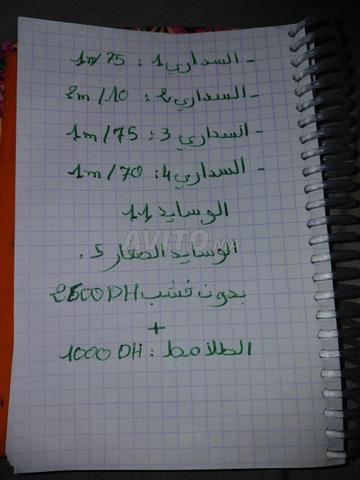 - السداري 1 : 1m/75
- السداري 2 : 2m/10
- السداري 3 : 1m/75
- السداري 4 : 1m/70
الوسايد 11
AVITO.ma
الوسايد الصغار 5.
بدون خشب 2500DH
+
الطلامط : 1000DH